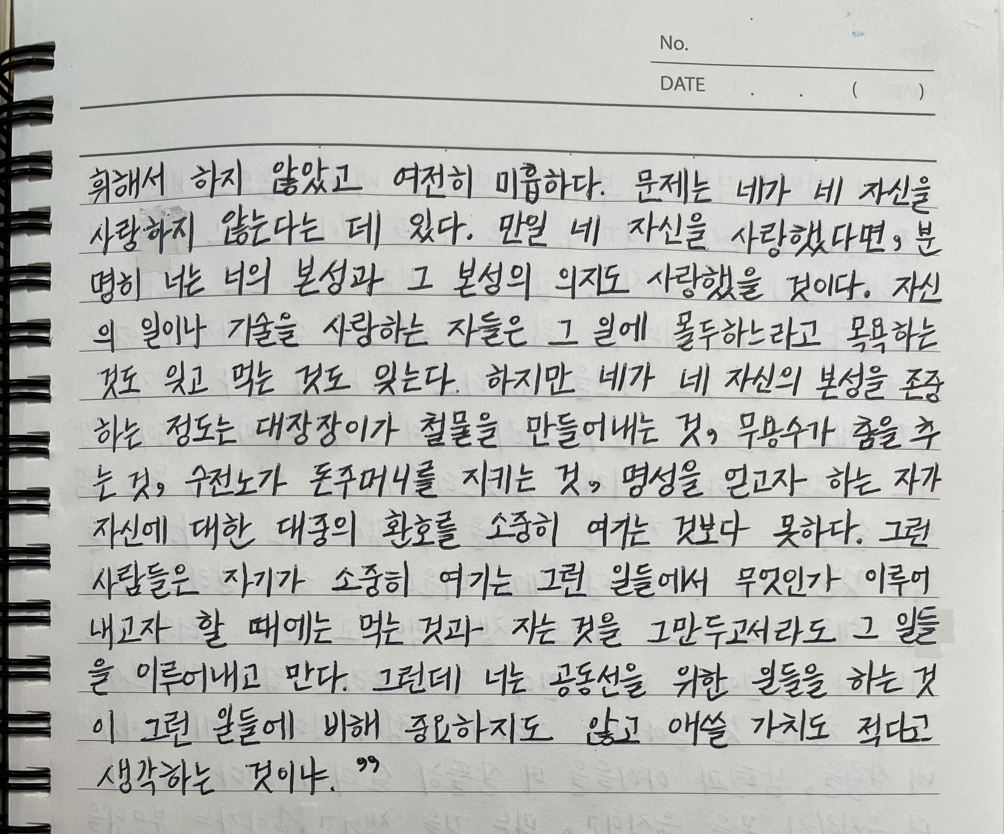 No.
DATE . . ( )
휘해서 하지 않았고 여전히 미흡하다. 문제는 네가 네 자신을
사랑하지 않는다는 데 있다. 만일 네 자신을 사랑했다면, 분
명히 너는 너의 본성과 그 본성의 의지도 사랑했을 것이다. 자신
의 일이나 기술을 사랑하는 자들은 그 일에 몰두하느라고 목욕하는
것도 잊고 먹는 것도 잊는다. 하지만 네가 네 자신의 본성을 존중
하는 정도는 대장장이가 철물을 만들어내는 것, 무용수가 춤을 추
는 것, 수전노가 돈주머니를 지키는 것, 명성을 얻고자 하는 자가
자신에 대한 대중의 환호를 소중히 여기는 것보다 못하다. 그런
사람들은 자기가 소중히 여기는 그런 일들에서 무엇인가 이루어
내고자 할 때에는 먹는 것과 자는 것을 그만두고서라도 그 일들
을 이루어내고 만다. 그런데 너는 공동선을 위한 일들을 하는 것
이 그런 일들에 비해 중요하지도 않고 애쓸 가치도 적다고
생각하는 것이냐.”